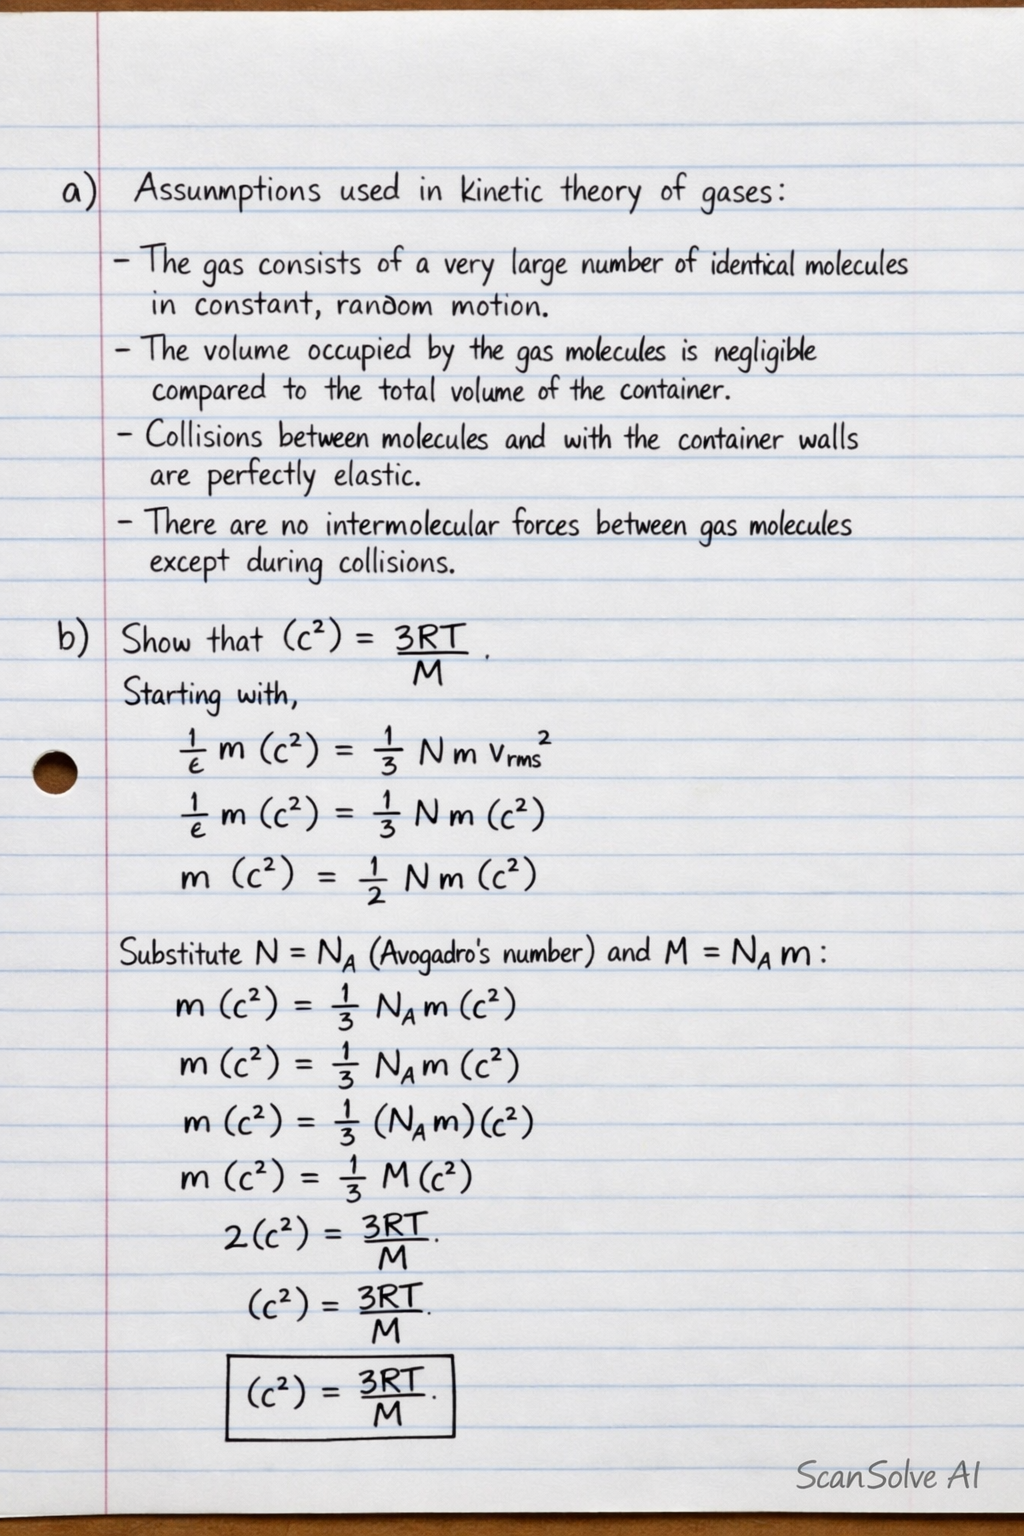 a) Assunmptions used in kinetic theory of gases:
– The gas consists of a very large number of identical molecules
in constant, random motion.
– The volume occupied by the gas molecules is negligible
compared to the total volume of the container.
– Collisions between molecules and with the container walls
are perfectly elastic.
– There are no intermolecular forces between gas molecules
except during collisions.
b) Show that (c²) = 3RT/M .
Starting with,
1/ϵ m (c²) = 1/3 N m v_rms²
1/e m (c²) = 1/3 N m (c²)
m (c²) = 1/2 N m (c²)
Substitute N = N_A (Avogadro's number) and M = N_A m:
m (c²) = 1/3 N_A m (c²)
m (c²) = 1/3 N_A m (c²)
m (c²) = 1/3 (N_A m)(c²)
m (c²) = 1/3 M (c²)
2(c²) = 3RT/M.
(c²) = 3RT/M.
(c²) = 3RT/M.
ScanSolve AI